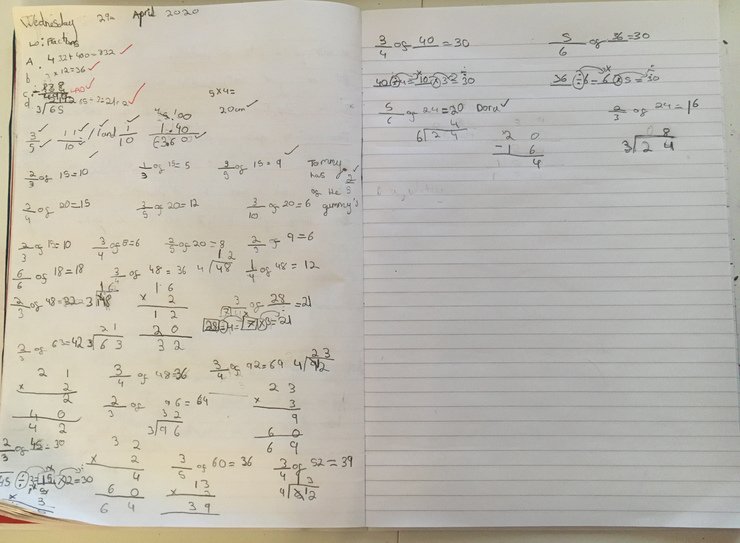 Wednesday 29th April 2020
Lo: Fractions
A. 432 + 400 = 832
b 3 × 12 = 36
c. 
d 3/65
3/5 11/10 1 and 1/10
1.40
5 × 4 =
20cm
2/3 of 15 = 10 1/3 of 15 = 5 3/5 of 15 = 9
Tommy has 2/5 of the gummy's
3/4 of 20 = 15 3/5 of 20 = 12 3/10 of 20 = 6
2/3 of 15 = 10 3/4 of 8 = 6 2/5 of 20 = 8 2/3 of 9 = 6
6/6 of 18 = 18 3/4 of 48 = 36 1/4 of 48 = 12
12
4/48
2/3 of 48 = 32
16
3/48
16
× 2
12
20
32
3/4 of 28 = 21
28 ÷ 4 = 7 × 3 = 21
2/3 of 63 = 42
21
3/63
21
× 2
2
40
42
3/4 of 48 = 36 3/4 of 92 = 69
23
4/92
2/3 of 96 = 64
32
3/96
23
× 3
9
60
69
2/3 of 45 = 30
45 ÷ 3 = 15 × 2 = 30
32
× 2
4
60
64
3/5 of 60 = 36 3/4 of 52 = 39
13
4/52
13
× 3
39
3/4 of 40 = 30 5/6 of 36 = 30
40 ÷ 4 = 10 × 3 = 30 36 ÷ 6 = 6 × 5 = 30
5/6 of 24 = 20 Dora 2/3 of 24 = 16
4
6/24
20
- 16
4
08
3/24